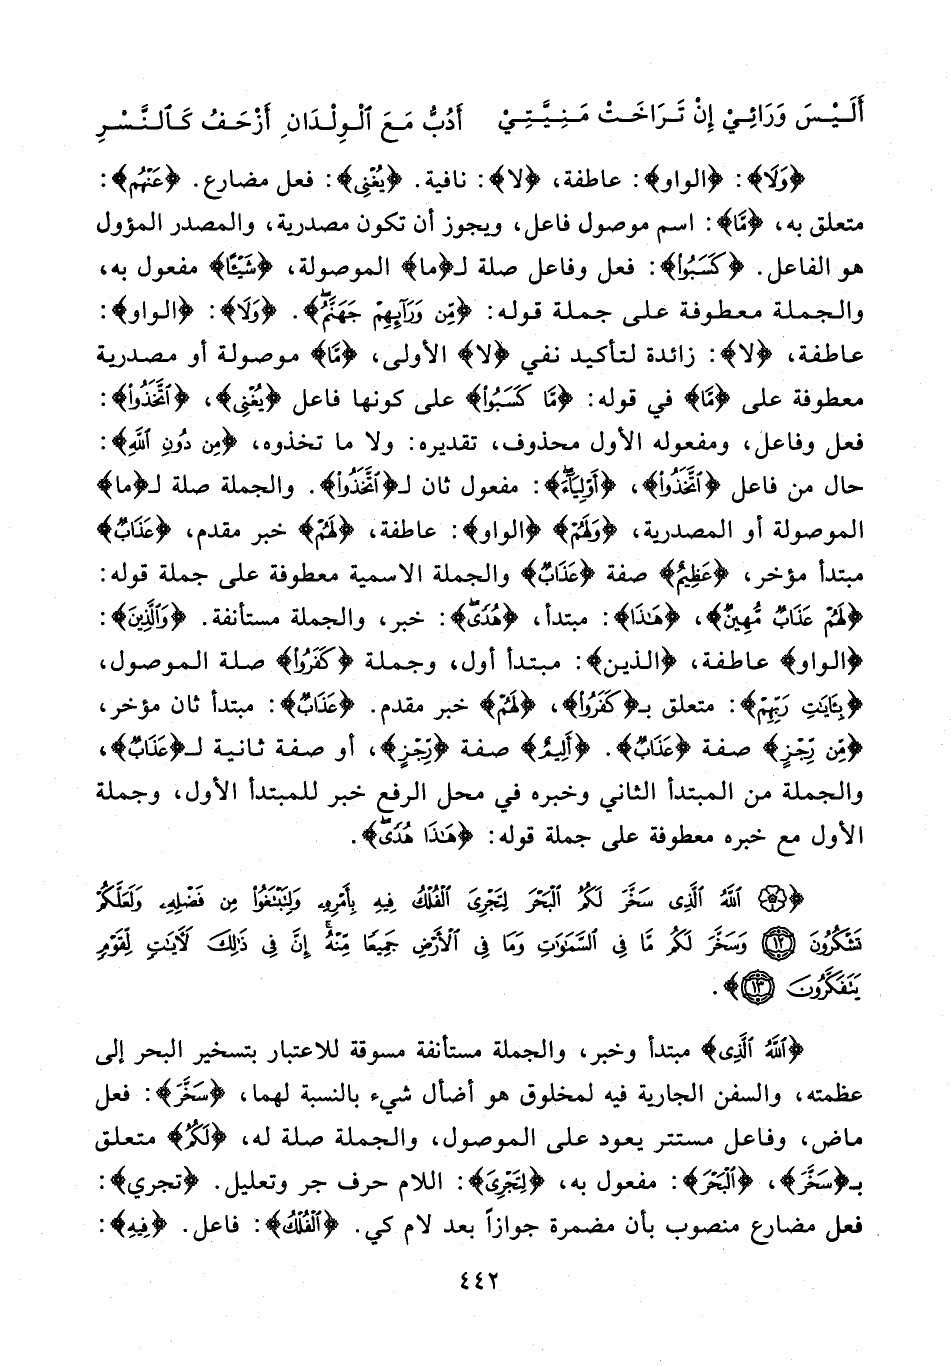 أَلَيْسَ وَرَائِيْ إِنْ تَرَاخَتْ مَنِيَّتِيْ أَدُبُّ مَعَ ٱلْوِلْدَانِ أَزْحَفُ كَٱلنَّسْرِ
﴿وَلَا﴾: ﴿الواو﴾: عاطفة، ﴿لا﴾: نافية. ﴿يُغْنِى﴾: فعل مضارع. ﴿عَنْهُم﴾:
متعلق به، ﴿مَّا﴾: اسم موصول فاعل، ويجوز أن تكون مصدرية، والمصدر المؤول
هو الفاعل. ﴿كَسَبُوا۟﴾: فعل وفاعل صلة لـ﴿ما﴾ الموصولة، ﴿شَيْـًٔا﴾ مفعول به،
والجملة معطوفة على جملة قوله: ﴿مِّن وَرَآئِهِمْ جَهَنَّمُۖ﴾. ﴿وَلَا﴾: ﴿الواو﴾:
عاطفة، ﴿لا﴾: زائدة لتأكيد نفي ﴿لا﴾ الأولى، ﴿مَّا﴾ موصولة أو مصدرية
معطوفة على ﴿مَّا﴾ في قوله: ﴿مَّا كَسَبُوا۟﴾ على كونها فاعل ﴿يُغْنِى﴾، ﴿ٱتَّخَذُوا۟﴾:
فعل وفاعل، ومفعوله الأول محذوف، تقديره: ولا ما تخذوه، ﴿مِن دُونِ ٱللَّهِ﴾:
حال من فاعل ﴿ٱتَّخَذُوا۟﴾، ﴿أَوْلِيَآءَۖ﴾: مفعول ثان لـ﴿ٱتَّخَذُوا۟﴾. والجملة صلة لـ﴿ما﴾
الموصولة أو المصدرية، ﴿وَلَهُمْ﴾ ﴿الواو﴾: عاطفة، ﴿لَهُمْ﴾ خبر مقدم، ﴿عَذَابٌ﴾
مبتدأ مؤخر، ﴿عَظِيمٌ﴾ صفة ﴿عَذَابٌ﴾ والجملة الاسمية معطوفة على جملة قوله:
﴿لَهُمْ عَذَابٌ مُّهِينٌ﴾، ﴿هَـٰذَا﴾: مبتدأ، ﴿هُدًىۖ﴾: خبر، والجملة مستأنفة. ﴿وَٱلَّذِينَ﴾:
﴿الواو﴾ عاطفة، ﴿الذين﴾: مبتدأ أول، وجملة ﴿كَفَرُوا۟﴾ صلة الموصول،
﴿بِـَٔايَـٰتِ رَبِّهِمْ﴾: متعلق بـ﴿كَفَرُوا۟﴾، ﴿لَهُمْ﴾ خبر مقدم. ﴿عَذَابٌ﴾: مبتدأ ثان مؤخر،
﴿مِّن رِّجْزٍ﴾ صفة ﴿عَذَابٌ﴾. ﴿أَلِيمٌ﴾ صفة ﴿رِّجْزٍ﴾، أو صفة ثانية لـ﴿عَذَابٌ﴾،
والجملة من المبتدأ الثاني وخبره في محل الرفع خبر للمبتدأ الأول، وجملة
الأول مع خبره معطوفة على جملة قوله: ﴿هَـٰذَا هُدًىۖ﴾.
﴿۞ ٱللَّهُ ٱلَّذِى سَخَّرَ لَكُمُ ٱلْبَحْرَ لِتَجْرِىَ ٱلْفُلْكُ فِيهِ بِأَمْرِهِۦ وَلِتَبْتَغُوا۟ مِن فَضْلِهِۦ وَلَعَلَّكُمْ
تَشْكُرُونَ ١٢ وَسَخَّرَ لَكُم مَّا فِى ٱلسَّمَـٰوَٰتِ وَمَا فِى ٱلْأَرْضِ جَمِيعًا مِّنْهُۚ إِنَّ فِى ذَٰلِكَ لَـَٔايَـٰتٍ لِّقَوْمٍ
يَتَفَكَّرُونَ ١٣﴾.
﴿ٱللَّهُ ٱلَّذِى﴾ مبتدأ وخبر، والجملة مستأنفة مسوقة للاعتبار بتسخير البحر إلى
عظمته، والسفن الجارية فيه لمخلوق هو أضأل شيء بالنسبة لهما، ﴿سَخَّرَ﴾: فعل
ماض، وفاعل مستتر يعود على الموصول، والجملة صلة له، ﴿لَكُمُ﴾ متعلق
بـ﴿سَخَّرَ﴾، ﴿ٱلْبَحْرَ﴾: مفعول به، ﴿لِتَجْرِىَ﴾: اللام حرف جر وتعليل. ﴿تجري﴾:
فعل مضارع منصوب بأن مضمرة جوازاً بعد لام كي. ﴿ٱلْفُلْكُ﴾: فاعل. ﴿فِيهِ﴾:
٤٤٢